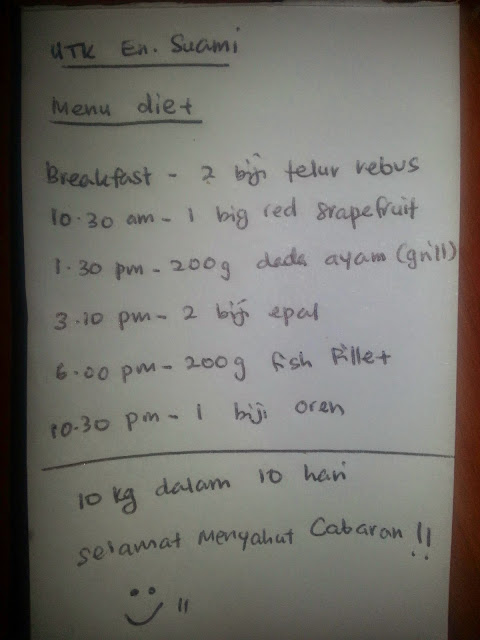 UTK En. Suami
Menu diet
Breakfast - 2 biji telur rebus
10.30 am - 1 big red grapefruit
1.30 pm - 200g dada ayam (grill)
3.10 pm - 2 biji epal
6.00 pm - 200g fish fillet
10.30 pm - 1 biji oren
10 kg dalam 10 hari
Selamat Menyahut Cabaran !!